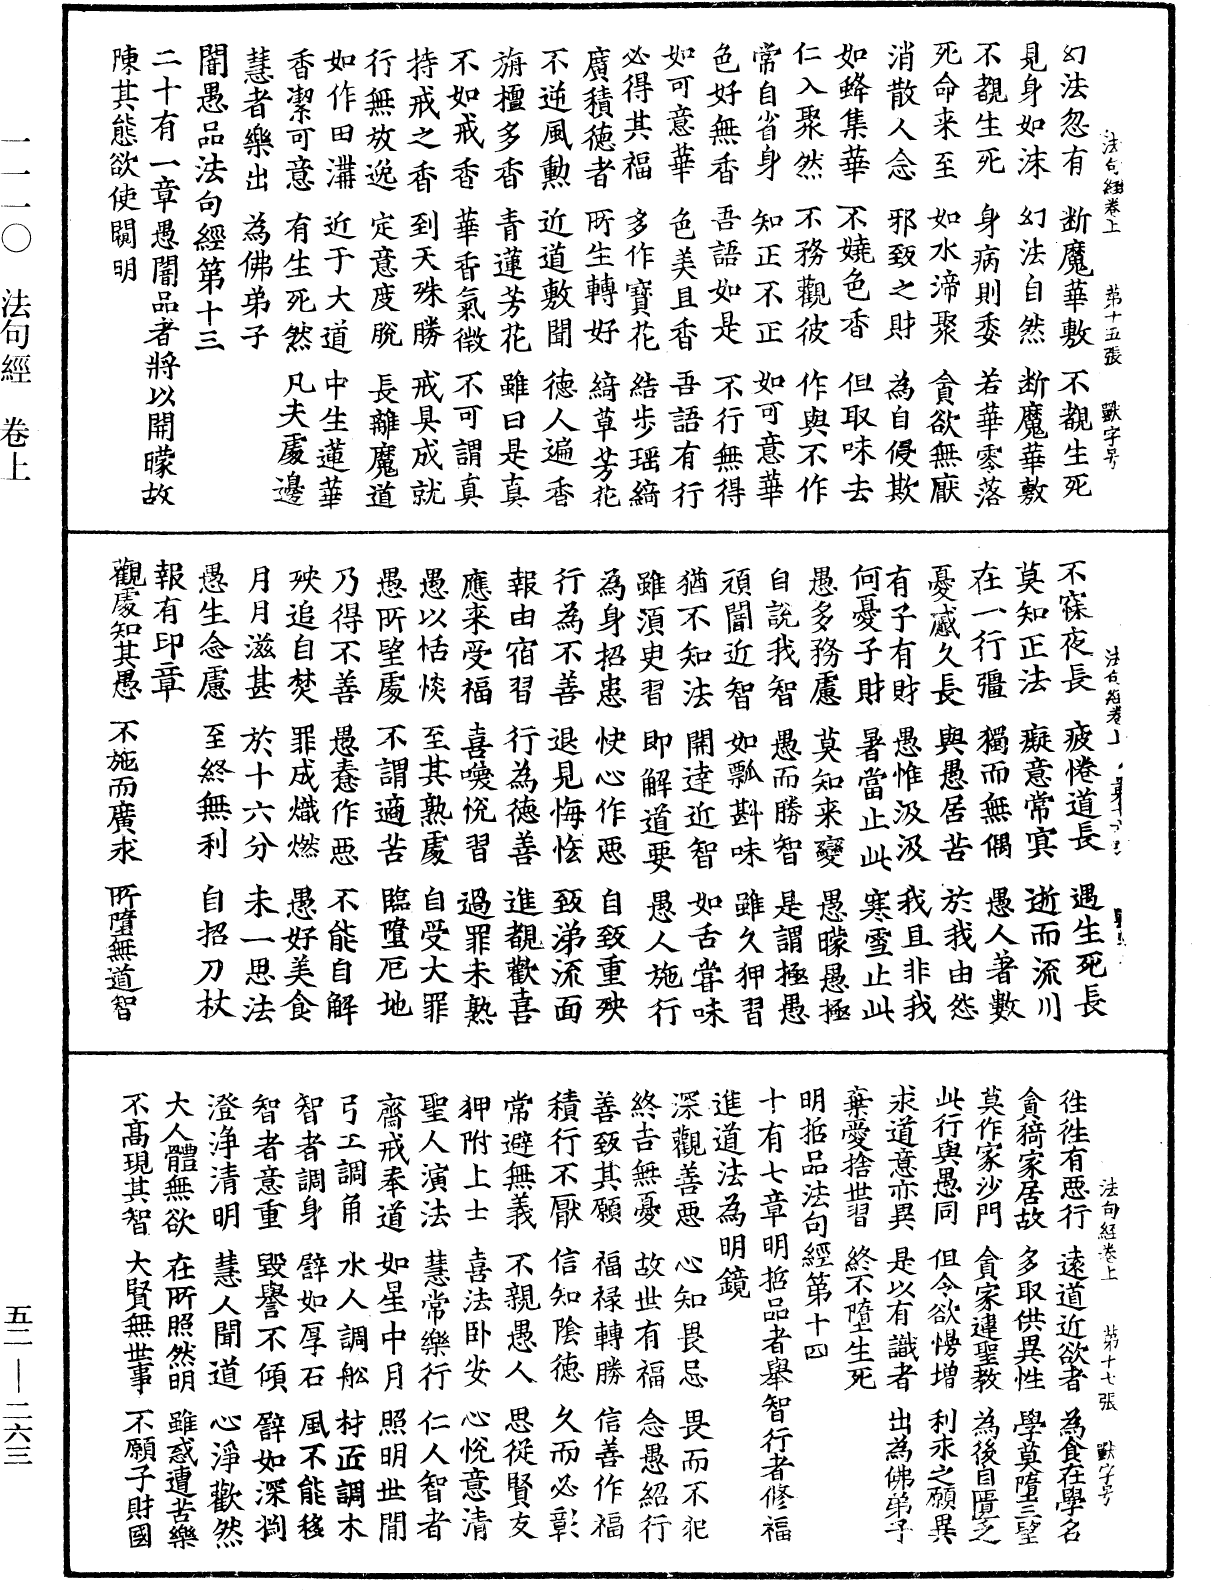 一一一〇　法句經　卷上
法句經卷上　第十五張　獸字号
幻法忽有　断魔華敷　不覩生死
見身如沫　幻法自然　断魔華敷
不覩生死　身病則委　若華零落
死命来至　如水渧聚　貪欲無厭
消散人念　邪致之財　為自侵欺
如蜂集華　不嬈色香　但取味去
仁入聚然　不務觀彼　作與不作
常自省身　知正不正　如可意華
色好無香　吾語如是　不行無得
如可意華　色美且香　吾語有行
必得其福　多作寶花　結步瑶綺
廣積德者　所生轉好　綺草芳花
不逆風熏　近道敷聞　德人遍香
旃檀多香　青蓮芳花　雖曰是真
不如戒香　華香氣微　不可謂真
持戒之香　到天殊勝　戒具成就
行無放逸　定意度脫　長離魔道
如作田溝　近于大道　中生蓮華
香潔可意　有生死然　凡夫處邊
慧者樂出　為佛弟子
闇愚品法句經第十三
二十有一章愚闇品者將以開曚故
陳其態欲使闚明
法句經卷上
不寐夜長　疲惓道長　遇生死長
莫知正法　癡意常冥　逝而流川
在一行彊　獨而無偶　愚人著數
憂慼久長　與愚居苦　於我由怨
有子有財　愚惟汲汲　我且非我
何憂子財　暑當止此　寒雪止此
愚多務慮　莫知来變　愚曚愚極
自說我智　愚而勝智　是謂極愚
頑闇近智　如瓢斟味　雖久狎習
猶不知法　開達近智　如舌嘗味
雖須臾習　即解道要　愚人施行
為身招患　快心作惡　自致重殃
行為不善　退見悔恡　致涕流面
報由宿習　行為德善　進覩歡喜
應来受福　喜𠷣悅習　過罪未熟
愚以恬惔　至其熟處　自受大罪
愚所望處　不謂適苦　臨墮厄地
乃得不善　愚惷作惡　不能自解
殃追自焚　罪成熾燃　愚好美食
月月滋甚　於十六分　未一思法
愚生念慮　至終無利　自招刀杖
報有印章
觀處知其愚　不施而廣求　所墮無道智
法句經卷上　第十七張　獸字号
往往有惡行　遠道近欲者　為食在學名
貪猗家居故　多取供異性　學莫墮三望
莫作家沙門　貪家違聖教　為後自匱乏
此行與愚同　但令欲慢增　利求之願異
求道意亦異　是以有識者　出為佛弟子
棄愛捨世習　終不墮生死
明哲品法句經第十四
十有七章明哲品者舉智行者修福
進道法為明鏡
深觀善惡　心知畏忌　畏而不犯
終吉無憂　故世有福　念愚紹行
善致其願　福祿轉勝　信善作福
積行不厭　信知陰德　久而必彰
常避無義　不親愚人　思從賢友
狎附上士　喜法卧安　心悅意清
聖人演法　慧常樂行　仁人智者
齋戒奉道　如星中月　照明世間
弓工調角　水人調舩　材匠調木
智者調身　譬如厚石　風不能移
智者意重　毀譽不傾　譬如深淵
澄淨清明　慧人聞道　心淨歡然
大人體無欲　在所照然明　雖或遭苦樂
不高現其智　大賢無世事　不願子財國
五二—二六三